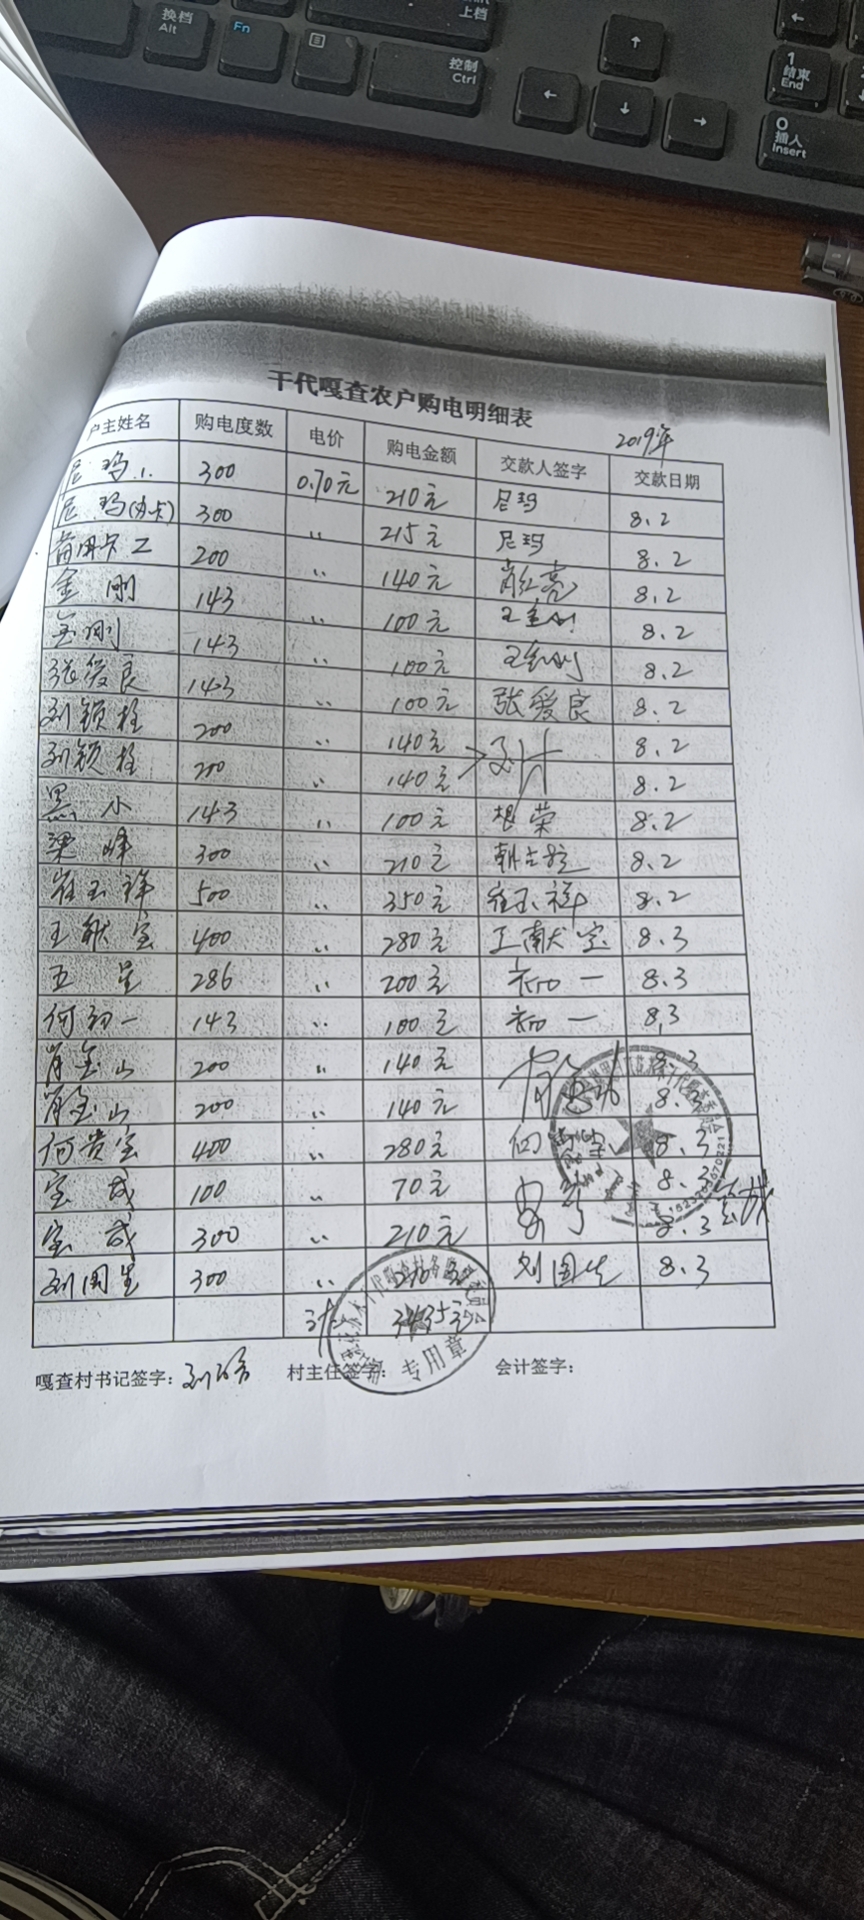 换档
Alt
Fn
上档
控制
Ctrl
1
结束
End
0
插入
Insert
干代嘎查农户购电明细表
2019年
户主姓名 购电度数 电价 购电金额 交款人签字 交款日期
尼玛 300 0.70元 210元 尼玛 8.2
尼玛(办卡) 300 〃 215元 尼玛 8.2
200 〃 140元 8.2
金刚 143 〃 100元 王金刚 8.2
金刚 143 〃 100元 王金刚 8.2
张爱良 143 〃 100元 张爱良 8.2
刘锁柱 200 〃 140元 8.2
刘锁柱 200 〃 140元 8.2
黑小 143 〃 100元 根荣 8.2
梁峰 300 〃 210元 8.2
崔玉祥 500 〃 350元 崔玉祥 8.2
王献宝 400 〃 280元 王献宝 8.3
五星 286 〃 200元 初一 8.3
何初一 143 〃 100元 初一 8.3
肖金山 200 〃 140元 8.3
肖金山 200 〃 140元 8.3
何贵宝 400 〃 280元 何贵宝 8.3
宝成 100 〃 70元 8.3
宝成 300 〃 210元 8.3
刘国生 300 〃 210元 刘国生 8.3
计 3435元
嘎查村书记签字: 村主任签字: 会计签字:
专用章